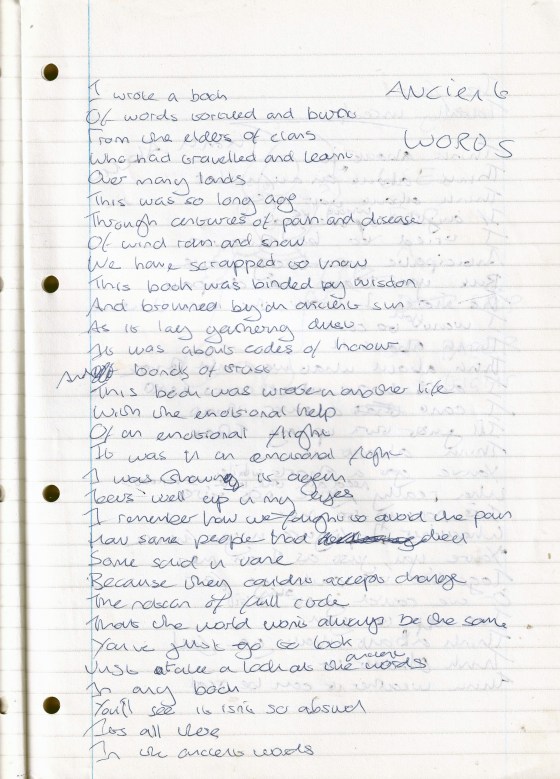 ANCIENT
WORDS
I wrote a book
Of words and
From the elders of clans
Who had travelled and learnt
Over many lands
This was so long ago
Through centuries of pain and disease
Of wind rain and snow
We have scrapped to know
This book was binded by wisdon
And browned by an ancient sun
As it lay gathering dust
It was about codes of honour
And bonds of trust
This book was wrote in another life
With the emotional help
Of an emotional flight
It was in an emotional flight
I was it again
Tears well up in my eyes
I remember how we fought to avoid the pain
How some people had died
Some said in vane
Because they couldnt accept change
The of full code
That the world wont always be the same
You've just go to look
Just take a look at the ancient words
In any book
You'll see it isnt so absurd
Its all there
In the ancient words